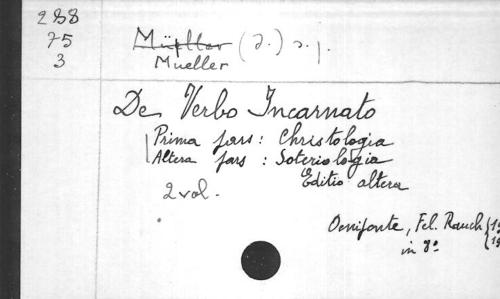 288
75
3
Müller (J.) s.j.
Mueller
De Verbo Incarnato
Prima pars: Christologia
Altera pars: Soteriologia
Editio altera
2 vol.
Oeniponte, Fel. Rauch
in 8°